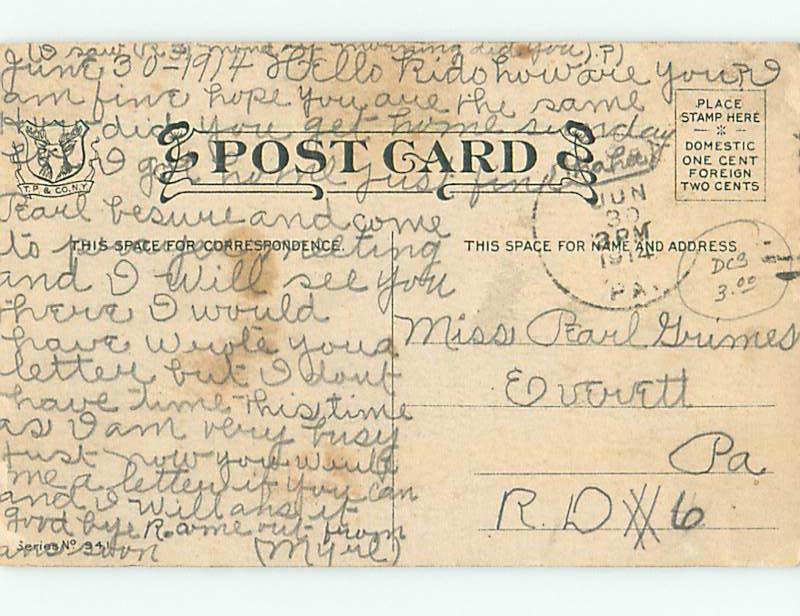 (I saw R.S. mond at morning did you).?)
June 30-1914 Hello Kido how are you? I
am fine hope you are the same
How did you get home sunday
I got home just fine
POST CARD
T.P. & CO. N.Y.
PLACE
STAMP HERE
DOMESTIC
ONE CENT
FOREIGN
TWO CENTS
JUN
30
PM
1914
PA.
DC3
3.00
THIS SPACE FOR CORRESPONDENCE.
THIS SPACE FOR NAME AND ADDRESS
Pearl besure and come
to meeting
and I will see you
there I would
have wrote you a
letter but I dont
have time this time
as I am very busy
just now you write
me a letter if you can
and I will ans it
good bye R. come out from
ans soon (Myrl)
Series No 941
Miss Pearl Grimes
Everett
Pa
R.D # 6